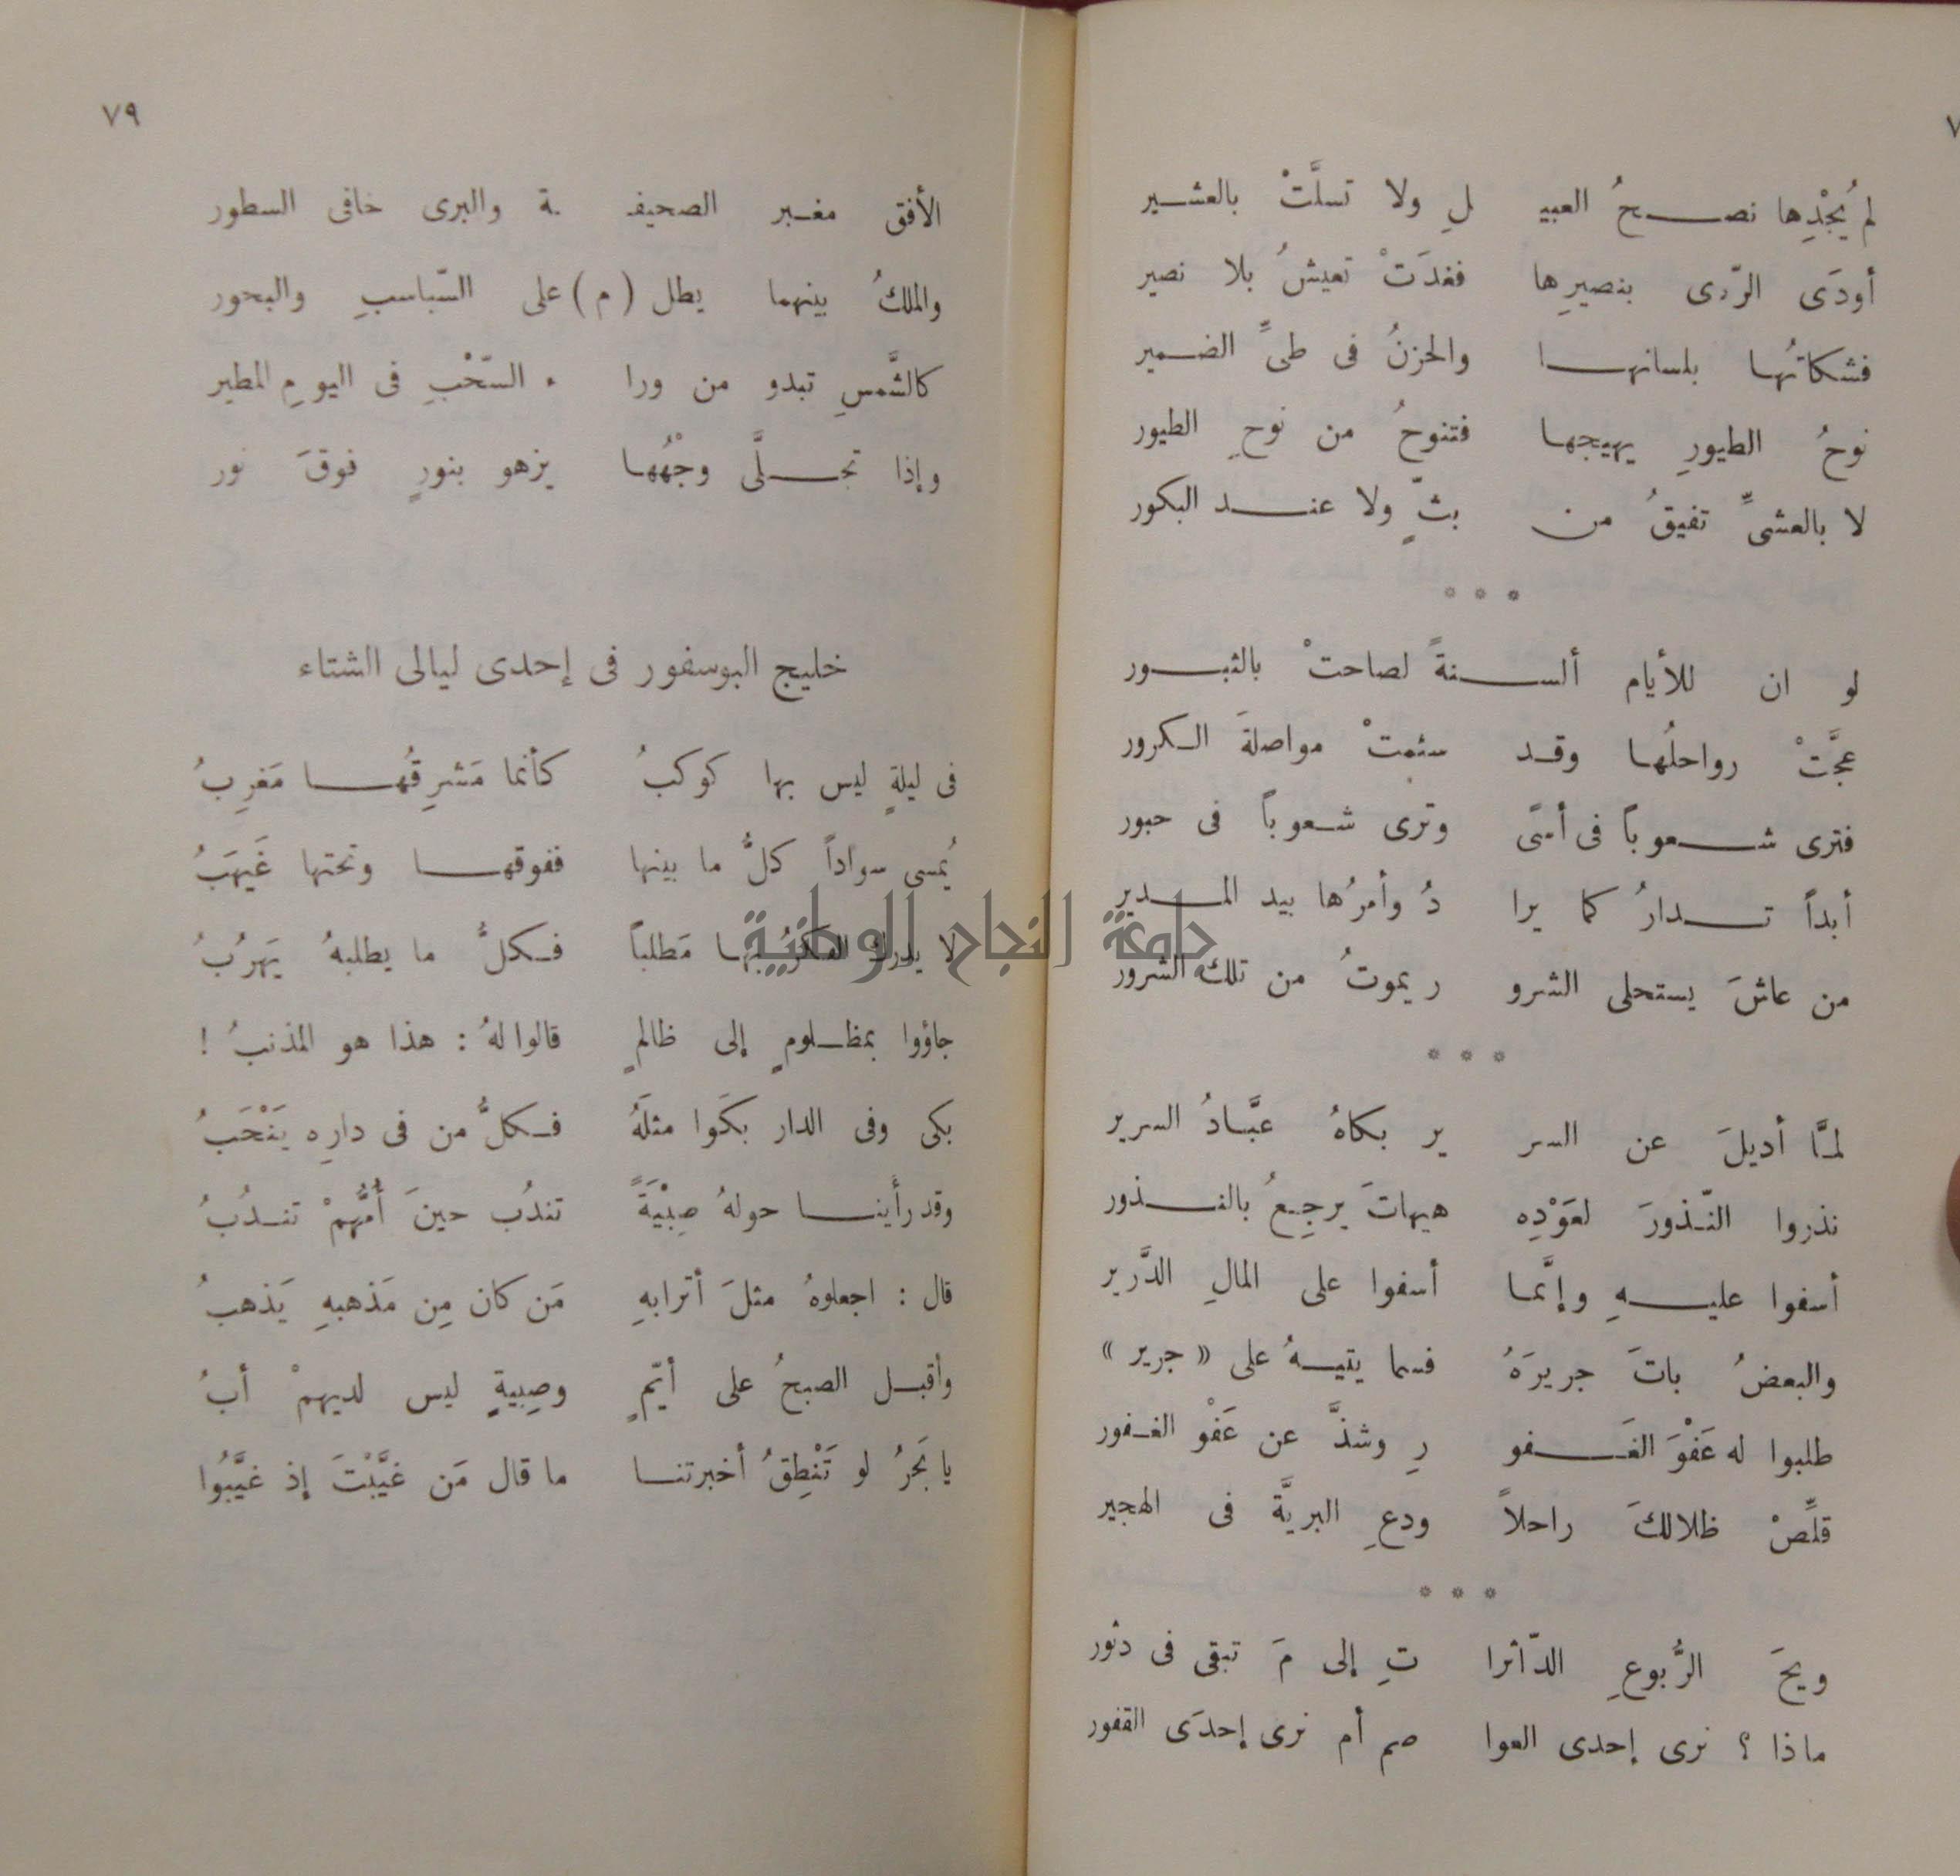 ٧
لم يُجْدِها نصحُ العبيـ ـلِ ولا تسلَّتْ بالعشير
أودَى الرّدى بنصيرِها فغدَتْ تعيشُ بلا نصير
فشكاتُها بلسانها والحزنُ فى طىِّ الضمير
نوحُ الطيورِ يهيجها فتنوحُ من نوحِ الطيور
لا بالعشىِّ تفيقُ من بثٍّ ولا عند البكور
* * *
لو ان للأيام ألسنةً لصاحتْ بالثبور
عجَّتْ رواحلُها وقد سئمتْ مواصلةَ الكرور
فترى شعوباً فى أسىً وترى شعوباً فى حبور
أبداً تدارُ كما يرا دُ وأمرُها بيد المدير
من عاشَ يستحلى الشرو ر يموتُ من تلك الشرور
* * *
لمَّا أديلَ عن السر ير بكاهُ عبَّادُ السرير
نذروا النّذورَ لعَوْدِه هيهاتَ يرجِعُ بالنذور
أسفوا عليهِ وإنَّما أسفوا على المالِ الدَّرير
والبعضُ باتَ جريرَهُ فسما يتيهُ على « جرير »
طلبوا له عَفْوَ الغَفو رِ وشذَّ عن عَفْو الغفور
قلِّصْ ظلالكَ راحلاً ودعِ البريَّة فى الهجير
* * *
ويحَ الرُّبوعِ الدّاثرا تِ إلى مَ تبقى فى دثور
ماذا ؟ نرى إحدى العوا صم أم نرى إحدَى القفور
٧٩
الأفق مغبر الصحيفـ ـة والبرى خافى السطور
والملكُ بينهما يطل ( م ) على السّباسبِ والبحور
كالشَّمسِ تبدو من ورا ء السّحْبِ فى اليومِ المطير
وإذا تجلَّى وجْهُها يزهو بنورٍ فوقَ نور
خليج البوسفور فى إحدى ليالى الشتاء
فى ليلةٍ ليس بها كوكبُ كأنما مَشرِقُها مَغرِبُ
يُمسى سواداً كلُّ ما بينها ففوقها وتحتها غَيهَبُ
لا يدرك الفكرُ بها مَطلباً فكلُّ ما يطلبهُ يَهرُبُ
جاؤوا بمظلومٍ إلى ظالمٍ قالوا لهُ : هذا هو المذنبُ !
بكى وفى الدار بكَوا مثلَهُ فكلُّ من فى دارِه يَنْحَبُ
وقد رأينا حولهُ صِبْيَةً تندُب حينَ أُمُّهمْ تندُبُ
قال : اجعلوهُ مثلَ أترابهِ مَن كان مِن مَذهبهِ يَذهبُ
وأقبل الصبحُ على أيّمٍ وصِبيةٍ ليس لديهمْ أبُ
يا بَحرُ لو تَنْطِقُ أخبرتنا ما قال مَن غيَّبْتَ إذ غيَّبُوا
جامعة النجاح الوطنية